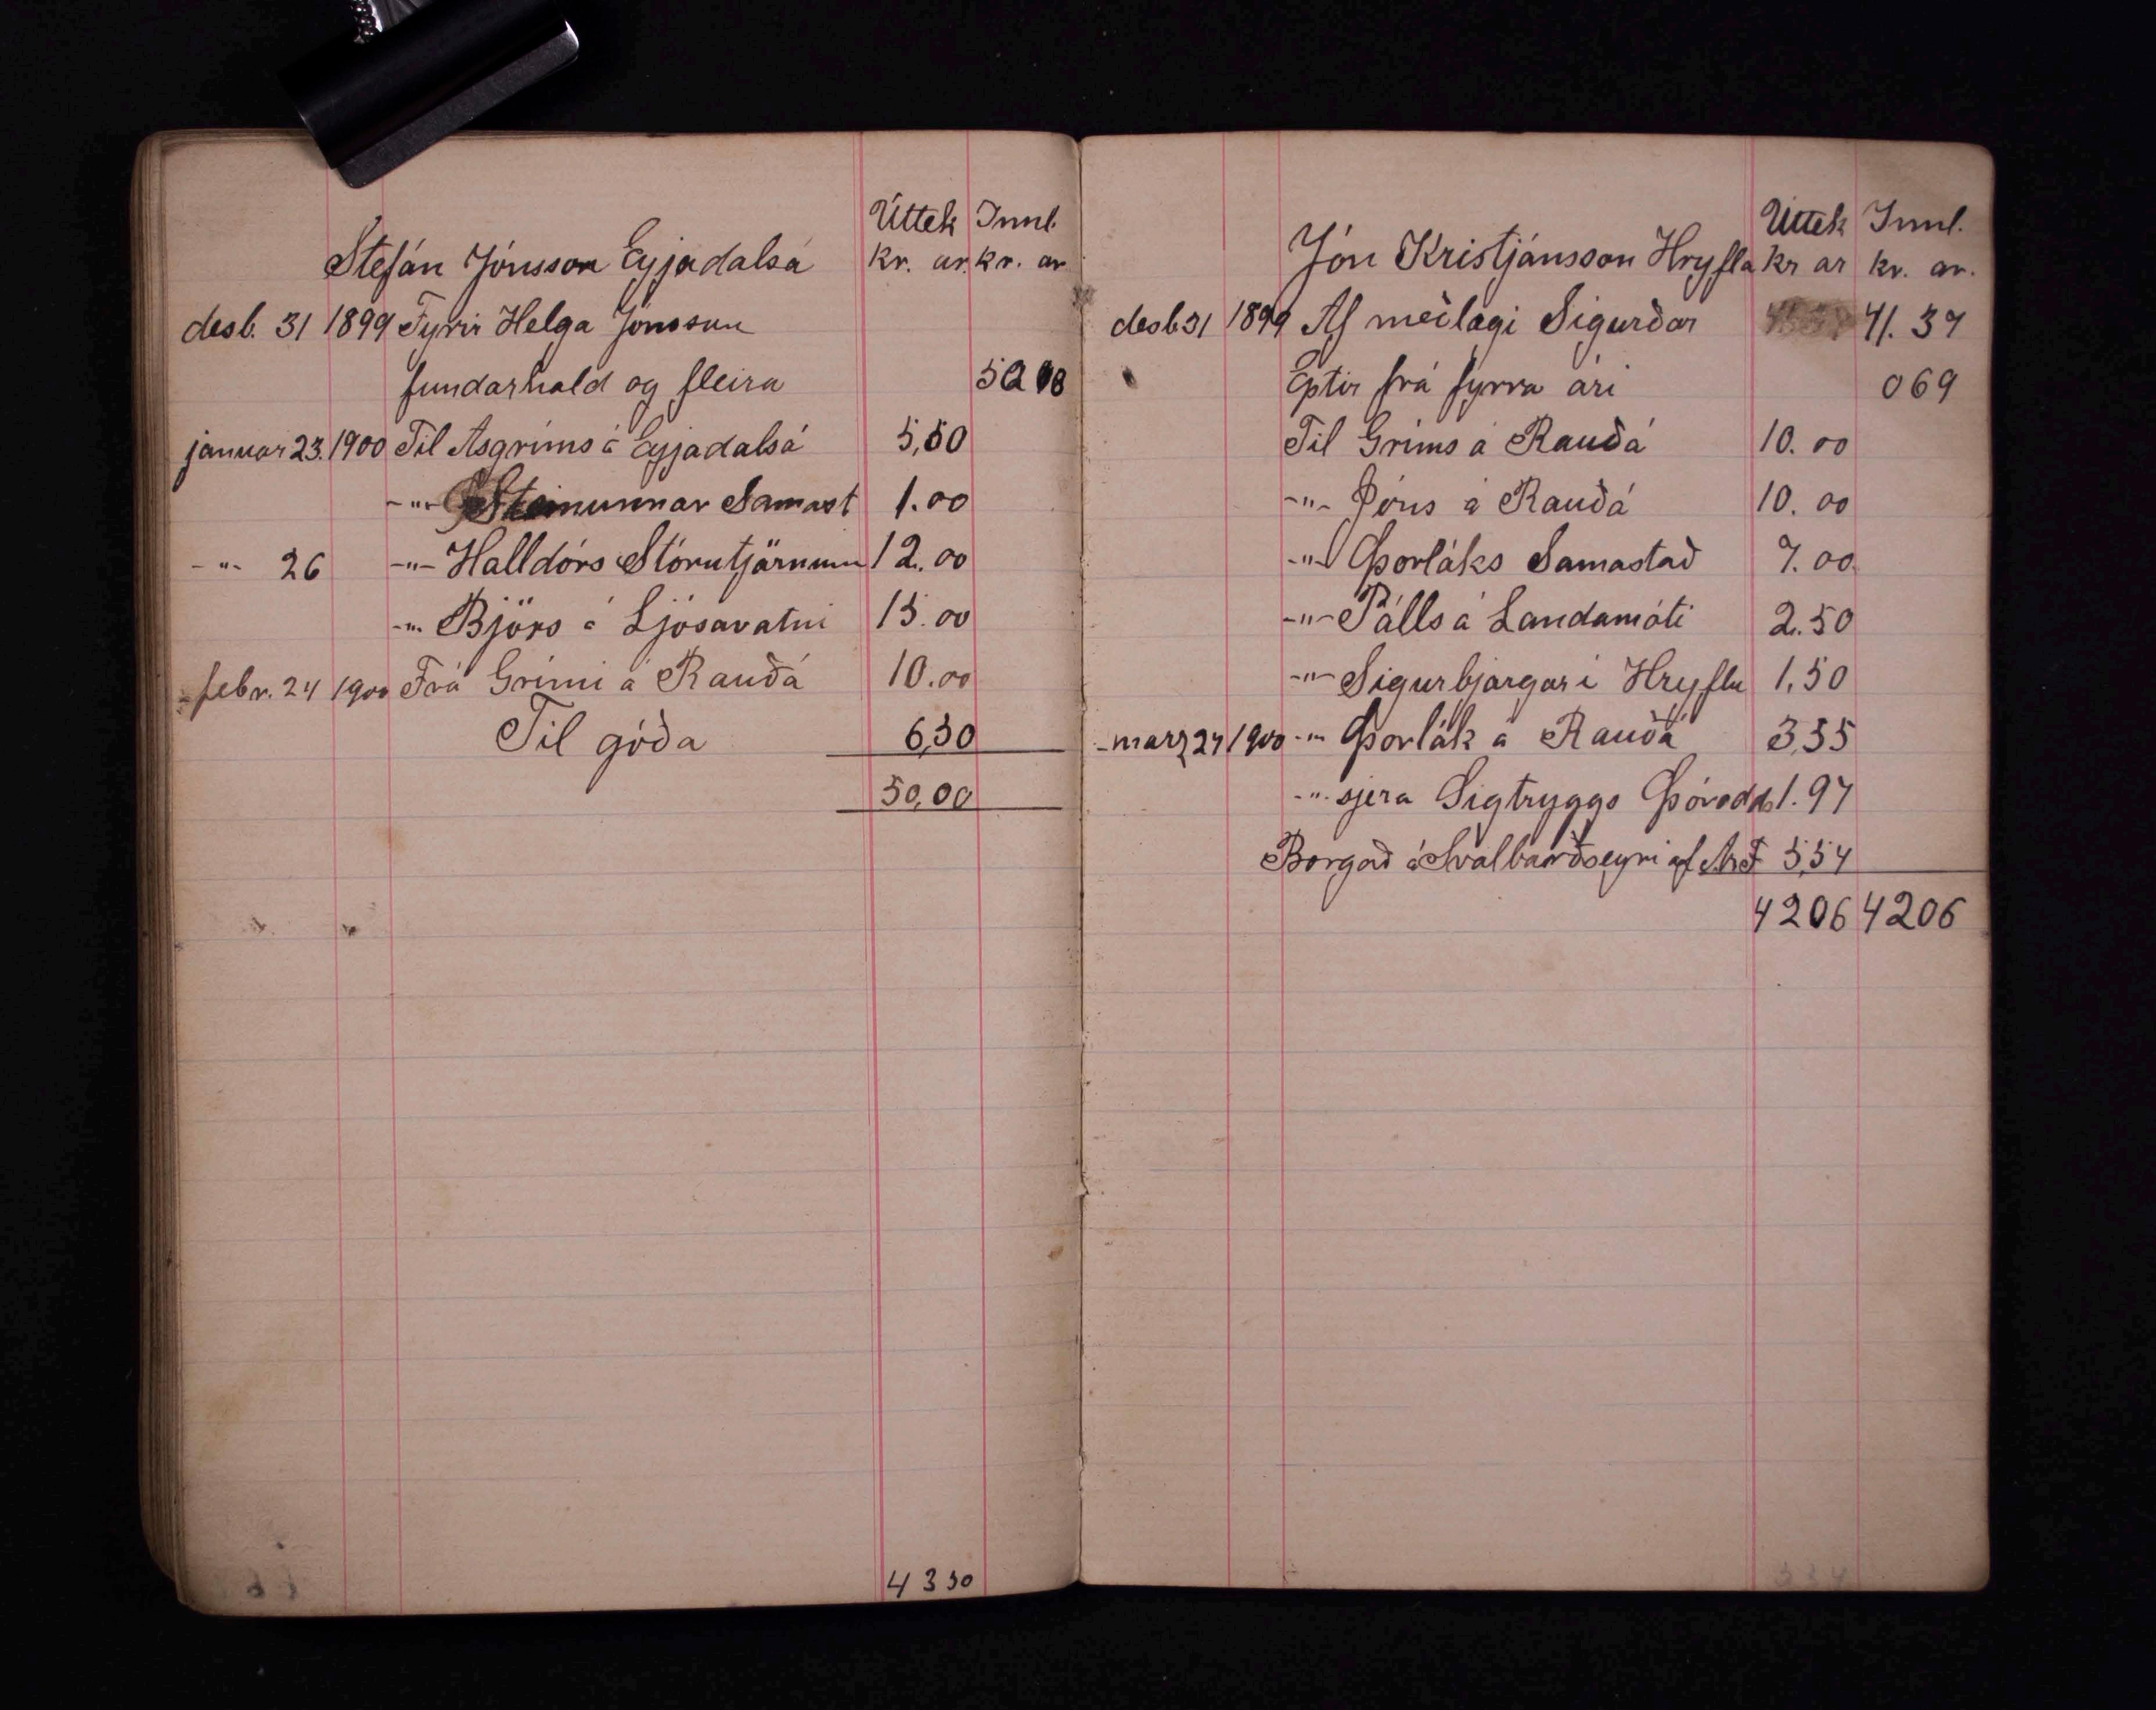 Úttek Innl.
Stefán Jónsson Eyjadalsá kr. ar. kr. ar
desb. 31 1899 Fyrir Helga Jónsson
fundarhald og fleira
januar 23. 1900 Til Asgríms á Eyjadalsá 5,50
-"- Steinunnar Samast 1.00
-"- 26 -"- Halldórs Stórutjörnum 12.00
-"- Björs á Ljósavatni 15.00
febr. 24 1900 Frá Grími á Rauðá 10.00
Til góða 6,50
50,00
4350
Úttek Innl.
Jón Kristjánsson Hryflu kr ar kr. ar.
desb 31 1899 Af meðlagi Sigurðar 41.37
Eptir frá fyrra ári 069
Til Gríms á Rauðá 10.00
-"- Jóns á Rauðá 10.00
-"- Þorláks Samastað 7.00
-"- Pálls á Landamóti 2.50
-"- Sigurbjargar í Hryflu 1,50
marz 24 1900 -"- Þorlák á Rauðá 3,55
-"- sjera Sigtryggs Þórodds 1.97
Borgað á Svalbarðseyri af 5,54
4206 4206